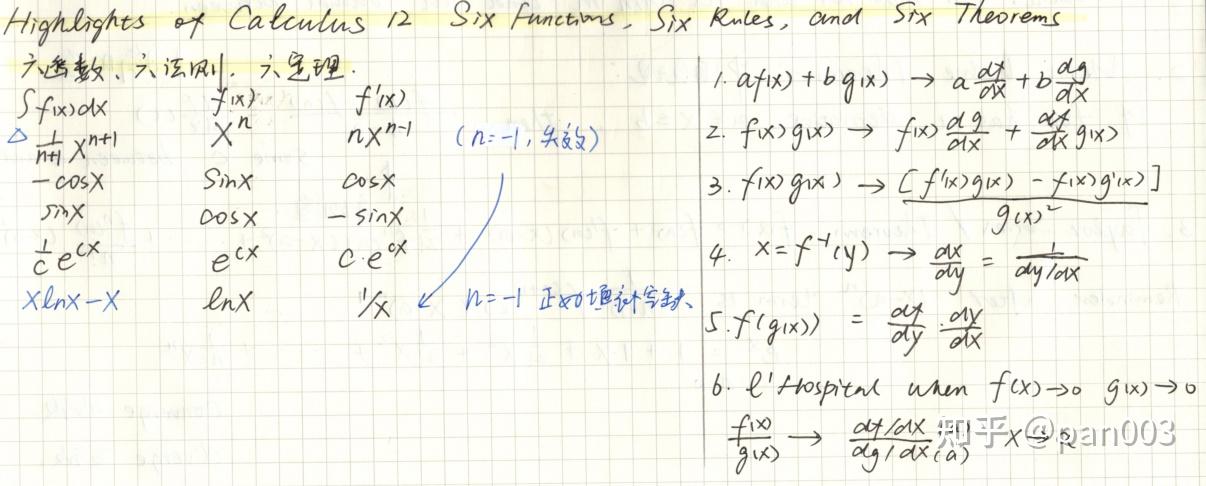 Highlights of Calculus 12 Six Functions, Six Rules, and Six Theorems
六函数、六法则、六定理.
∫f(x)dx f(x) f'(x)
△ 1/(n+1) x^(n+1) x^n nx^(n-1) (n=-1,失效)
-cosx sinx cosx
sinx cosx -sinx
1/c e^(cx) e^(cx) c·e^(cx)
xlnx-x lnx 1/x n=-1 正好填补空缺
1. af(x)+bg(x) → a df/dx + b dg/dx
2. f(x)g(x) → f(x) dg/dx + df/dx g(x)
3. f(x)g(x) → [f'(x)g(x) - f(x)g'(x)]/g(x)^2
4. x=f^(-1)(y) → dx/dy = 1/(dy/dx)
5. f(g(x)) = df/dy · dy/dx
6. l'Hospital when f(x)→0 g(x)→0
f(x)/g(x) → df/dx / dg/dx (a) x→a
知乎 @pan003